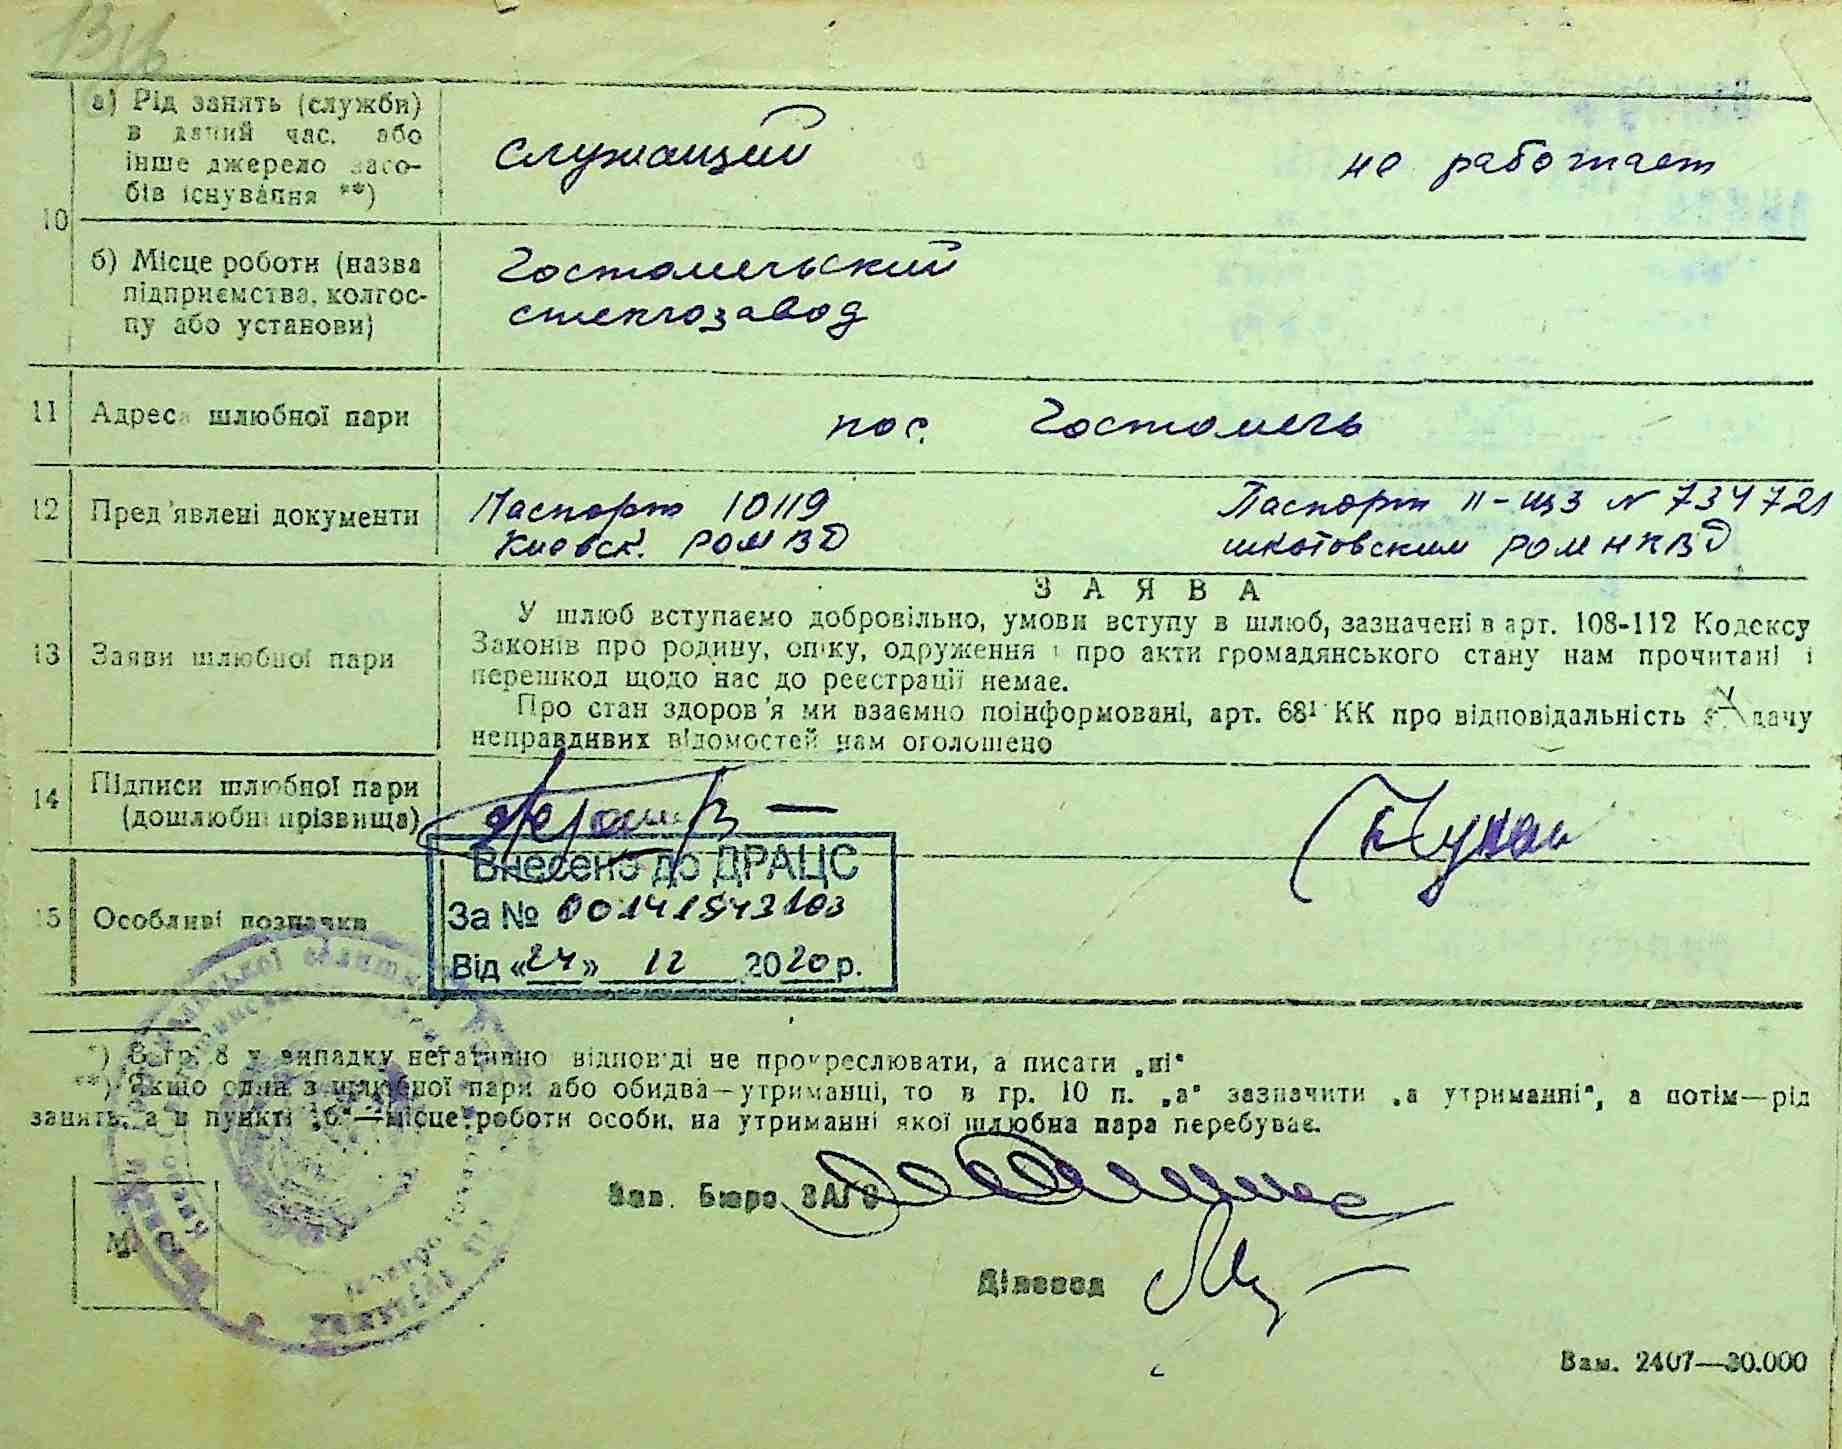 10
а) Рід занять (служби)
в даний час, або
інше джерело засо-
бів існування **)
служащий
не работает
б) Місце роботи (назва
підприємства, колгос-
пу або установи)
Гостомельский
стеклозавод
11 Адреса шлюбної пари
пос. Гостомель
12 Пред'явлені документи
Паспорт 10119
Киевск. РОМВД
Паспорт II-ЩЗ N 734721
шкотовским РОМНКВД
13 Заяви шлюбної пари
ЗАЯВА
У шлюб вступаємо добровільно, умови вступу в шлюб, зазначені в арт. 108-112 Кодексу
Законів про родину, опіку, одруження і про акти громадянського стану нам прочитані і
перешкод щодо нас до реєстрації немає.
Про стан здоров'я ми взаємно поінформовані, арт. 68¹ КК про відповідальність за дачу
неправдивих відомостей нам оголошено
14 Підписи шлюбної пари
(дошлюбні прізвища)
15 Особливі позначки
Внесено до ДРАЦС
За № 00141543103
Від «24» 12 2020 р.
*) В гр. 8 у випадку негативної відповіді не прокреслювати, а писати „ні“
**) Якщо один з шлюбної пари або обидва—утриманці, то в гр. 10 п. „а“ зазначити „а утриманні“, а потім—рід
занять, а в пункті „б“—місце роботи особи, на утриманні якої шлюбна пара перебуває.
Зав. Бюро ЗАГС
М. П.
Діловод
Зам. 2407—30.000